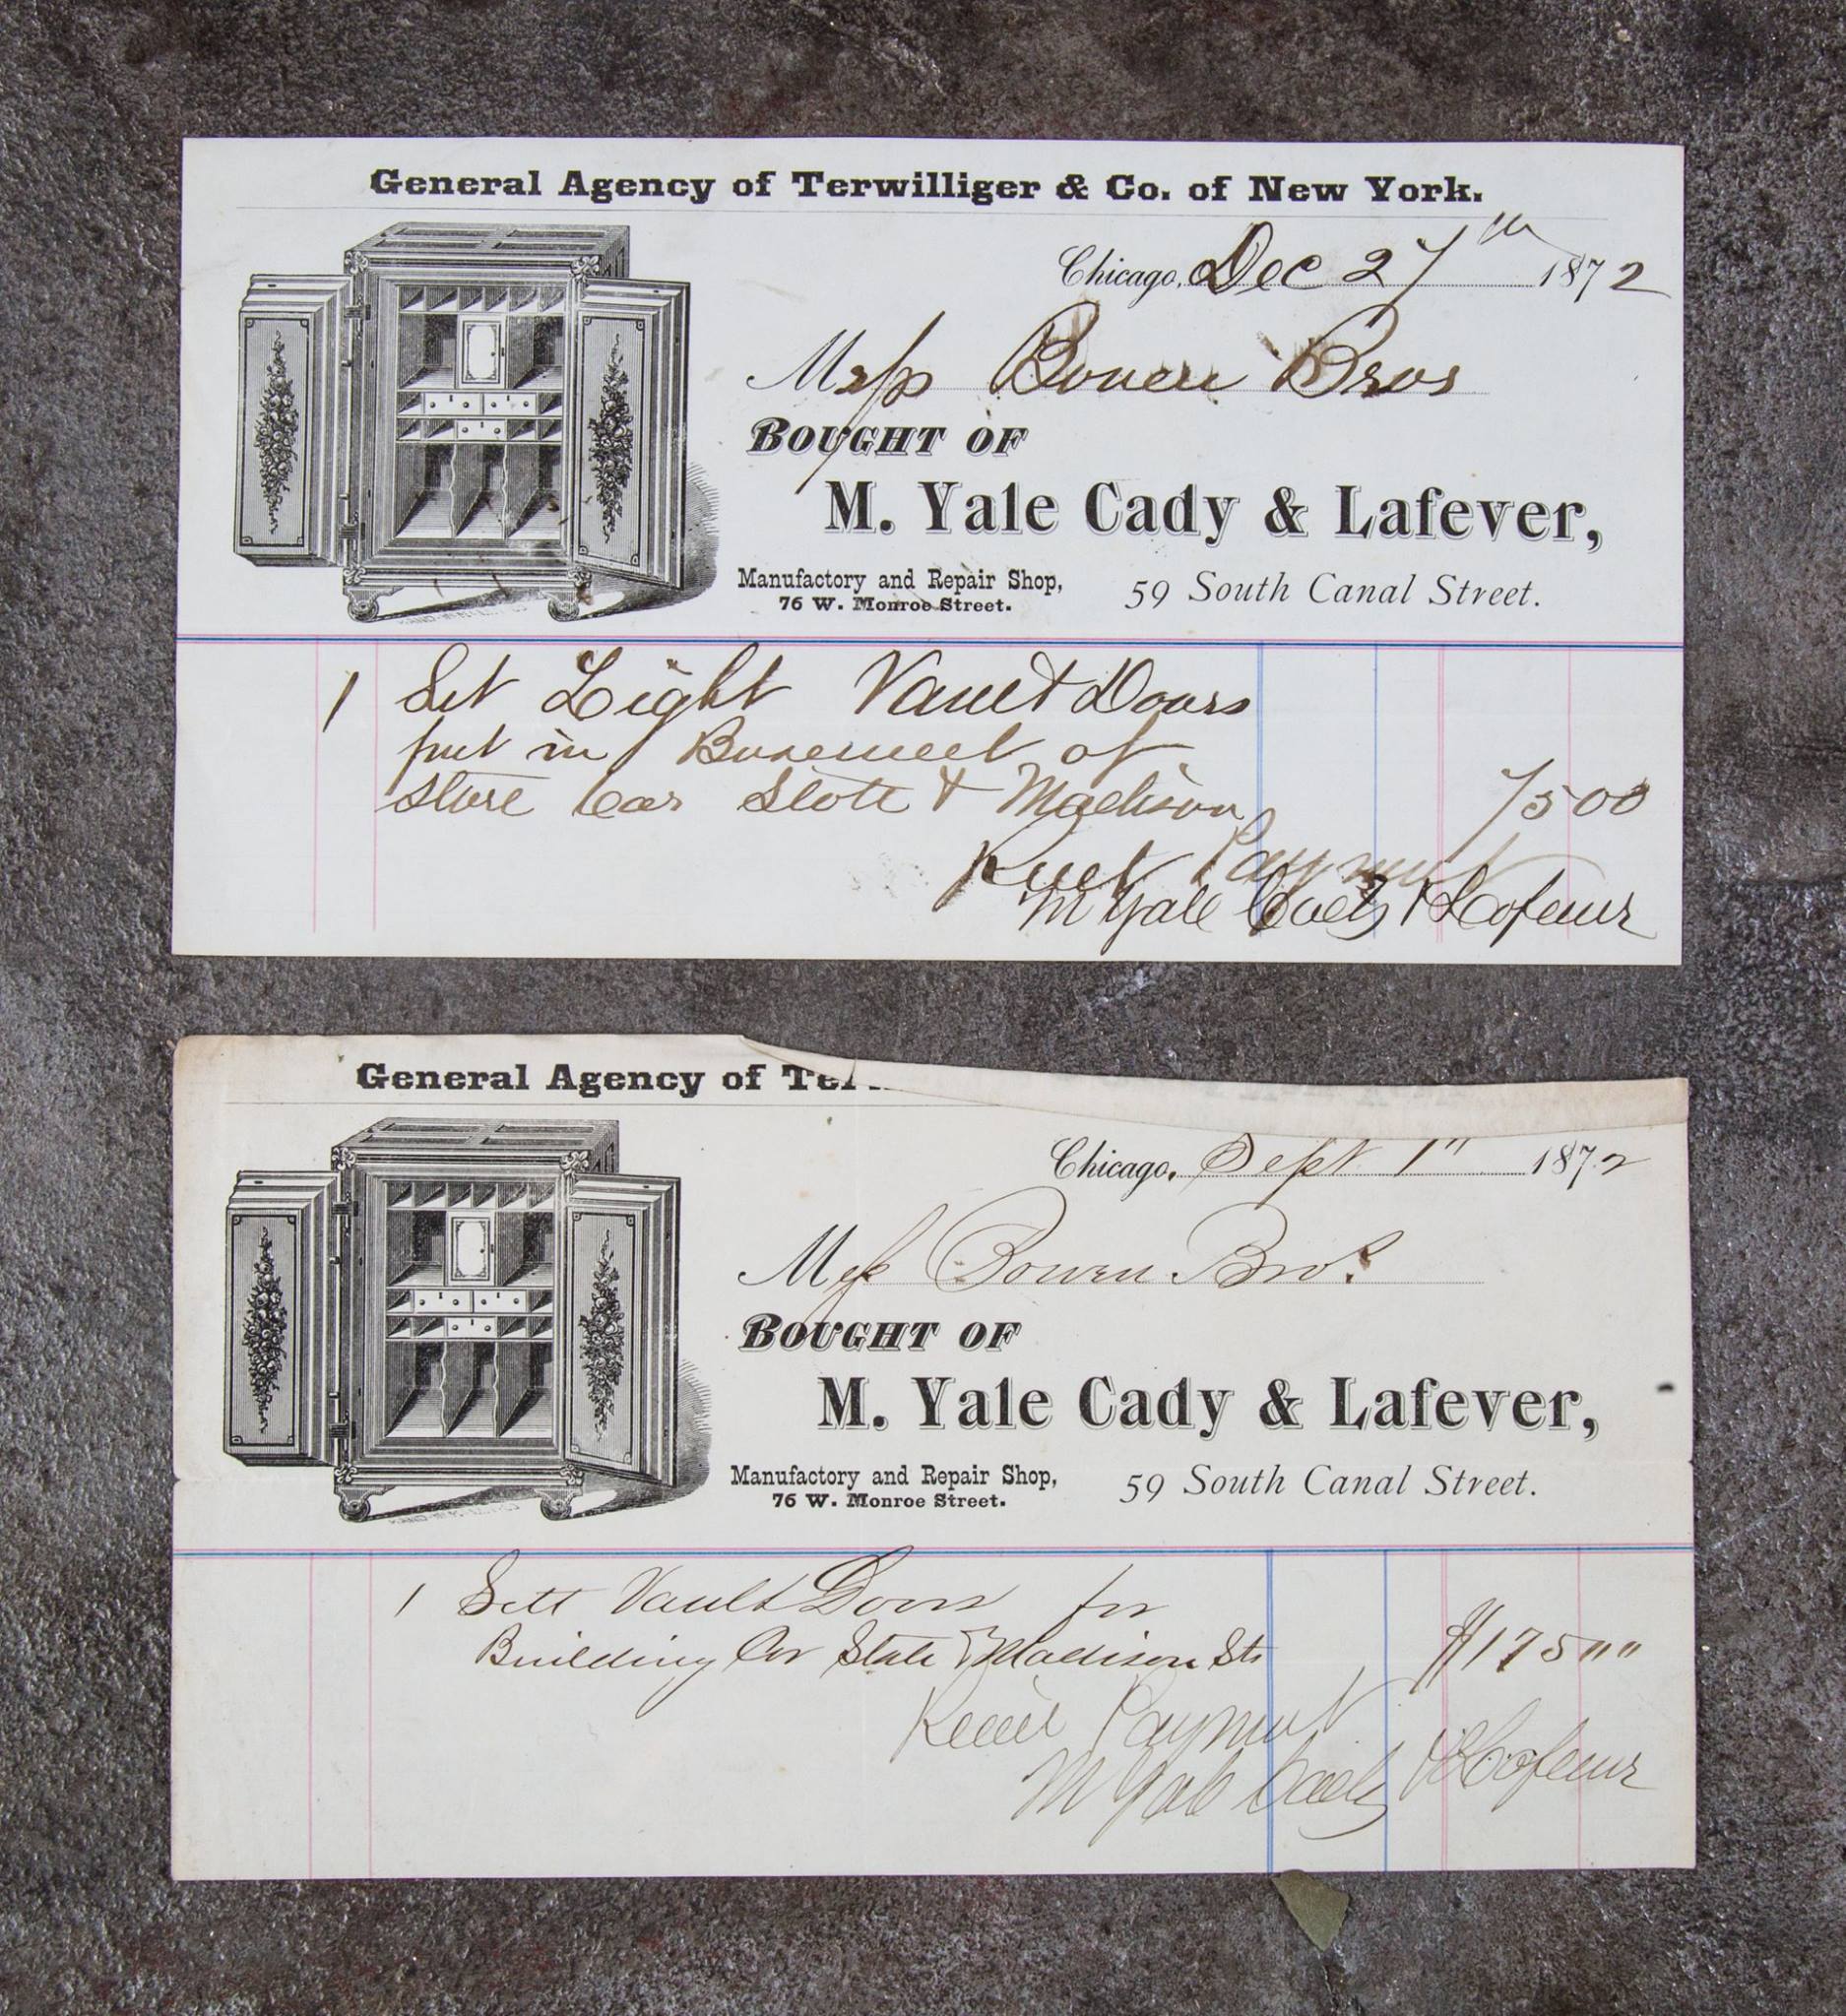 General Agency of Terwilliger & Co. of New York.
Chicago, Dec 27th 1872
Mess Bowen Bros
BOUGHT OF
M. Yale Cady & Lafever,
Manufactory and Repair Shop,
76 W. Monroe Street.
59 South Canal Street.
1 Set Light Vault Doors
put in Basement of
Store Cor State & Madison 75 00
Recd Paymnt
M Yale Cady & Lafever
General Agency of Ter
Chicago, Sept 1" 1872
Mess Bowen Bros
BOUGHT OF
M. Yale Cady & Lafever,
Manufactory and Repair Shop,
76 W. Monroe Street.
59 South Canal Street.
1 Sett Vault Doors for
Building Cor State & Madison Sts $175 " "
Paymnt
M Yale Cady & Lafever